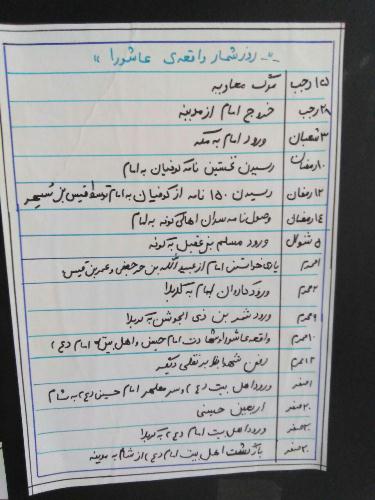 روز شمار واقعه‌ی عاشورا "
۱۵ رجب مرگ معاویه
۲۸ رجب خروج امام از مدینه
۳ شعبان ورود امام به مکه
۱۰ رمضان رسیدن نخستین نامه کوفیان به امام
۱۲ رمضان رسیدن ۱۵۰ نامه از کوفیان به امام توسط قیس بن مسهر
۱۴ رمضان وصول نامه سران اهالی کوفه به امام
۵ شوال ورود مسلم بن عقیل به کوفه
محرم یاری خواستن امام از عبیدالله بن حر جعفی و عمرو بن قیس
۲ محرم ورود کاروان امام به کربلا
۹ محرم ورود شمر بن ذی الجوشن به کربلا
۱۰ محرم واقعه عاشورا و شهادت امام حسین و اهل بیت امام (ع)
۱۳ محرم دفن شهدا بنا بر نقلی دیگر
۱ صفر ورود اهل بیت (ع) و سر مطهر امام حسین (ع) به شام
۲۰ صفر اربعین حسینی
۲۰ صفر ورود اهل بیت امام (ع) به کربلا
۲۰ صفر بازگشت اهل بیت امام (ع) از شام به مدینه